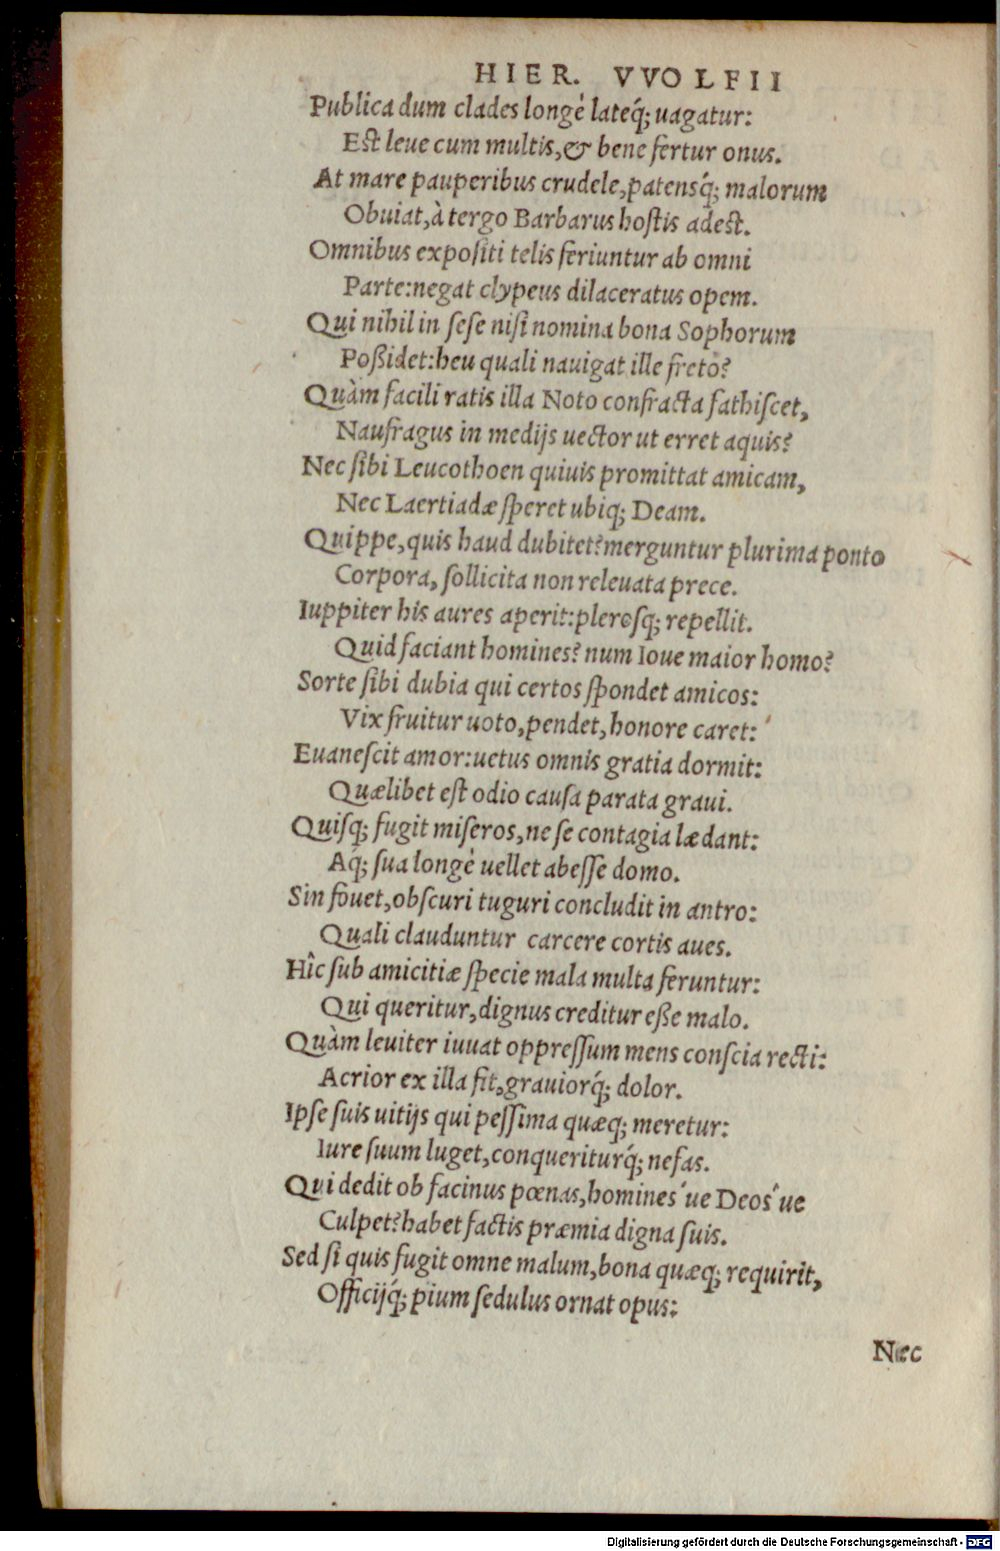 HIER. VVOLFII
Publica dum clades longè lateq́; uagatur:
Est leue cum multis, & bene fertur onus.
At mare pauperibus crudele, patensq́; malorum
Obuiat, à tergo Barbarus hostis adest.
Omnibus expositi telis feriuntur ab omni
Parte: negat clypeus dilaceratus opem.
Qui nihil in sese nisi nomina bona Sophorum
Poßidet: heu quali nauigat ille freto?
Quàm facili ratis illa Noto confracta fathiscet,
Naufragus in medijs uector ut erret aquis?
Nec sibi Leucothoen quiuis promittat amicam,
Nec Laertiadæ speret ubiq; Deam.
Quippe, quis haud dubitet? merguntur plurima ponto
Corpora, sollicita non releuata prece.
Iuppiter his aures aperit: plerosq; repellit.
Quid faciant homines? num Ioue maior homo?
Sorte sibi dubia qui certos spondet amicos:
Vix fruitur uoto, pendet, honore caret:
Euanescit amor: uetus omnis gratia dormit:
Quælibet est odio causa parata graui.
Quisq; fugit miseros, ne se contagia lædant:
Aq́; sua longè uellet abesse domo.
Sin fouet, obscuri tuguri concludit in antro:
Quali clauduntur carcere cortis aues.
Hîc sub amicitiæ specie mala multa feruntur:
Qui queritur, dignus creditur eße malo.
Quàm leuiter iuuat oppressum mens conscia recti:
Acrior ex illa fit, grauiorq́; dolor.
Ipse suis uitijs qui pessima quæq; meretur:
Iure suum luget, conqueriturq́; nefas.
Qui dedit ob facinus pœnas, homines´ue Deos´ue
Culpet? habet factis præmia digna suis.
Sed si quis fugit omne malum, bona quæq; requirit,
Officijq́; pium sedulus ornat opus:
Nec
Digitalisierung gefördert durch die Deutsche Forschungsgemeinschaft - DFG